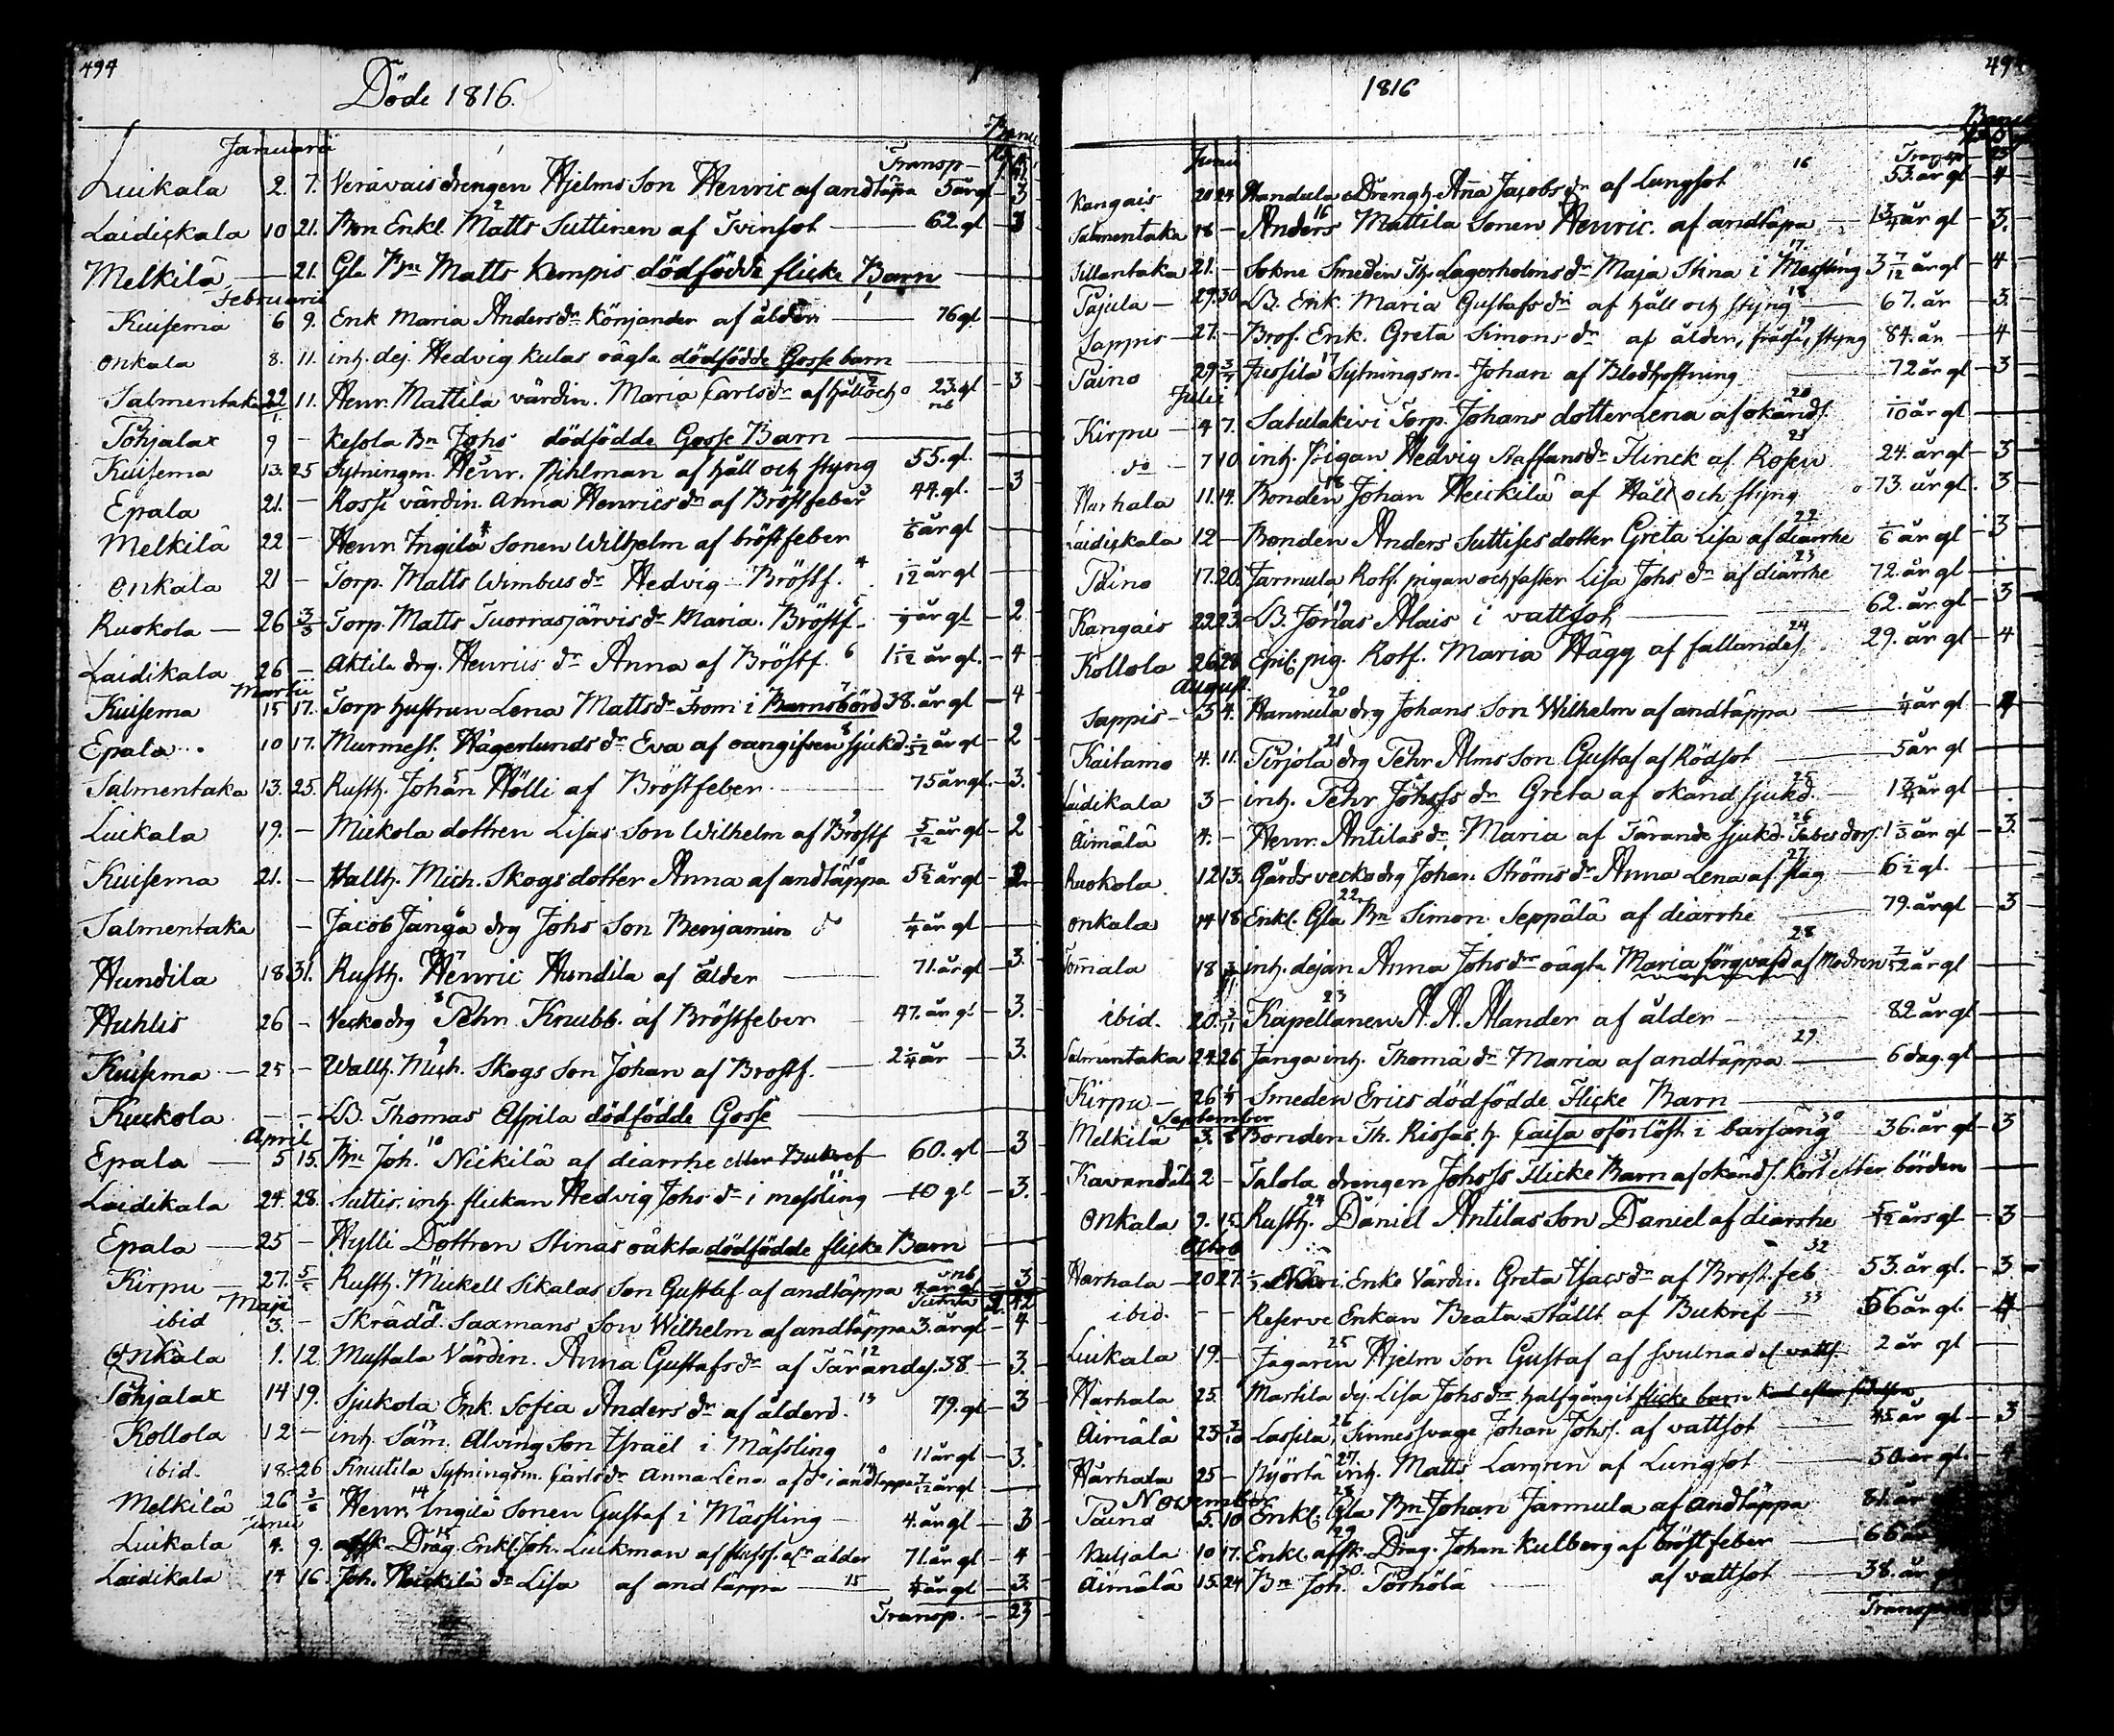 494
Döde 1816.
Januarii
Banco
Transp.
Luikala 2. 7. Veravais drengen Hjelms Son Henric af andtäppa 5 år gl 3
Laidickala 10 21. Bon Enkl. Matts Suttinen af Tvinsot 62. gl 3
Melkilä 21. Gla Bn Matts Kempis dödfödde flicke Barn
Februarii
Kuisema 6 9. Enk Maria Anders dr Könjander af ålder 76 gl
Onkala 8. 11. inh. dej. Hedvig Kulas oägta dödfödde Gosse barn
Salmentaka 22/1 11. Henr. Mattila värdin. Maria Carls dr af håll och 23. gl 3
Pohjalax 9 - Kesola Bn Johs dödfödde Gosse Barn
Kuisema 13. 25 Sytningm. Henr. Pihlman af håll och styng 55. gl. 3
Epala 21. - Rossi värdin. Anna Henrics dr af Bröstfeber 44. gl.
Melkilä 22 - Henr. Ingilä Sonen Wilhelm af bröstfeber 1/6 år gl
Onkala 21 - Torp. Matts Wimbus dr Hedvig Bröstf. 1/12 år gl
Ruokola 26 3/3 Torp. Matts Tuorrasjärvis dr Maria. Bröstf. år gl 2
Laidikala 26 - Aktila drg. Henrics dr Anna af Bröstf. 1 1/12 år gl. 4
Martii
Kuisema 15 17. Torp hustrun Lena Matts dr From i Barnsbörd 38. år gl 4
Epala 10 17. Murmest. Hägerlunds dr Eva af oangifven sjukd. 1/52 år gl 2
Salmentaka 13. 25. Rusth. Johan Hölli af Bröstfeber 75 år gl. 3.
Luikala 19. - Mickola dottren Lisas Son Wilhelm af Bröstf 5/12 år gl 2
Kuisema 21. - Wallh. Mich. Skogs dotter Anna af andtäppa 5 1/2 år gl 2
Salmentaka - Jacob Janga drg Johs Son Benjamin do 1/4 år gl
Hundila 18 31. Rusth. Henric Hundila af ålder 71. år gl 3.
Huhlis 26 - Veckodrg Pehr Knubb. af Bröstfeber 47. år gl 3.
Kuisema 25 - Wallh. Mich. Skogs Son Johan af Brostf. 2 1/4 år 3.
Kuckola - - LB. Thomas Aspila dödfödde Gosse
April
Epala 5 15. Bn Joh. Nickilä af diarrhe eller Bukref 60. gl 3
Laidikala 24. 28. Suttis. inh. flickan Hedvig Johs dr i messling 10 gl 3.
Epala 25 - Hylli Dottren Stinas oäkta dödfödde flicke Barn
Kirpu 27. 5/5 Rusth. Mickell Sikalas Son Gustaf af andtäppa år gl 3
Maji
ibid 3. - Skrädd. Saxmans Son Wilhelm af andtäppa 3. år gl 4
Onkala 1. 12 Mustala Värdin. Anna Gustafs dr af Tärandes. 38. 3.
Pohjalax 14 19. Sjukola Enk. Sofia Anders dr af ålderd. 79. gl 3
Kollola 12 - inh. Sam. Alving Son Israël i Mässling 11 år gl 3.
ibid. 18. 26 Knutila Sytningsm. Carls dr Anna Lena af do i andteppa 7/12 år gl
Melkilä 26 3/6 Henr. Ingilä Sonen Gustaf i Mässling 4. år gl 3
Junii
Luikala 4. 9. affsk Drag. Enkl. Joh. Luckman af flussf. elr ålder 71. år gl 4
Laidikala 14 16 Joh. Heickilä dr Lisa af andtäppa 1/4 år gl 3.
Transp. 23
1816
Banco
Junii
Transp. 23
Kangais 20 24 Handula Drengh. Anna Jacobs dr af Lungsot 53. år gl 4
Salmentaka 18 - Anders Mattila Sonen Henric. af andtäpa 1 3/4 år gl 3.
Sillantaka 21. - Sokne Smeden Th. Lagerholms dr Maja Stina i Messling 3 7/12 år gl 4
Pajula 29. 30 LB. Enk. Maria Gustafs dr af håll och styng 67. år 3.
Sappis 27. - Brof. Enk. Greta Simons dr af ålder, styng 84. år 4
Paino 29 3/7 Jussila Sytningsm. Johan af Blodhostning 72 år gl 3
Julii
Kirpu 4 7. Satulakivi Torp. Johans dotter Lena af okänd s. 1/10 år gl
do 7 10 inh. Pigan Hedvig Staffans dr Flinck af Rosen 24. år gl 3
Harhala 11. 14. Bonden Johan Heickilä af Håll och styng 73. år gl. 3
Laidickala 12 - Bonden Anders Suttises dotter Greta Lisa af diarrhe 1/6 år gl 3
Paino 17. 20. Jarmula Rotf. pigan och faster Lisa Johs dr af diarrhe 72. år gl
Kangais 22 23. LB. Jonas Alais i vattsot 62. år gl 3
Kollola 26 28 Epil. pig. Rotf. Maria Hägg af fallandes. 29. år gl 4
August.
Sappis 3 4. Hannula drg Johans Son Wilhelm af andtäppa 1/4 år gl 4
Kaitamo 4. 11. Pirjola drg Pehr Alms Son Gustaf af Rödsot 5 år gl
Laidikala 3 - inh. Pehr Johsfs dr Greta af okänd sjukd. 1 3/4 år gl
Äimälä 4. - Henr. Antilas dr Maria af Tärande sjukd. Tabes dors. 1 1/3 år gl 3.
Ruokola 12 13. Gårds veckodrg Johan Ströms dr Anna Lena af slag 6 1/2 gl.
Onkala 14 18 Enkl. Gla Bn Simon Seppälä af diarrhe 79. år gl 3
Tomala 18 inh. dejan Anna Johs dr oägta Maria förqvafd af Modren 7/52 år gl
ibid. 20. Kapellanen A. A. Alander af ålder 82 år gl
Salmentaka 24 26 Janga inh. Thomä dr Maria af andtäppa 6 dag. gl
Kirpu 26 Smeden Erics dödfödde Flicke Barn
September
Melkilä 3. 8 Bonden Th. Rissas h. Caisa oförlöst i barsäng 36. år gl 3
Kavandäll 2 - Talola drengen Johsfs Flicke Barn af okänd s. kort efter börden
Onkala 9. 15. Rusth. Daniel Antilas Son Daniel af diarrhe års gl 3
Octob
Harhala 20 27. Enke Värdin. Greta Isacs dr af Bröst. feb 53. år gl. 3.
ibid. - - Reserve Enkan Beata Ställt af Bukref 56 år gl. 4
Luikala 19. - Jägaren Hjelm Son Gustaf af svulnad el. vatts. 2 år gl
Harhala 25. Martila dej. Lisa Johs dr halfgångit flicke barn
Äimälä 23 Lassila, Sinnessvage Johan Johsf. af vattsot 45 år gl 3
Harhala 25 - Björlä inh. Matts Largren af Lungsot 50. år gl. 4
November
Paino 5. 10 Enkl. Gla Bn Johan Jarmula af andtäppa 81. år
10 17. Enkl. affsk. Drag. Johan Kulberg af bröstfeber 66 år
Äimälä 15. 24 Bn Joh. Törhölä af vattsot 38. år
Transport